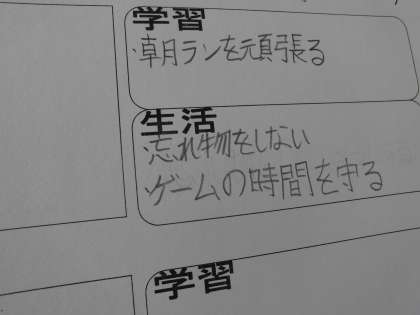 学習
・朝月ランを頑張る
生活
・忘れ物をしない
・ゲームの時間を守る
学習